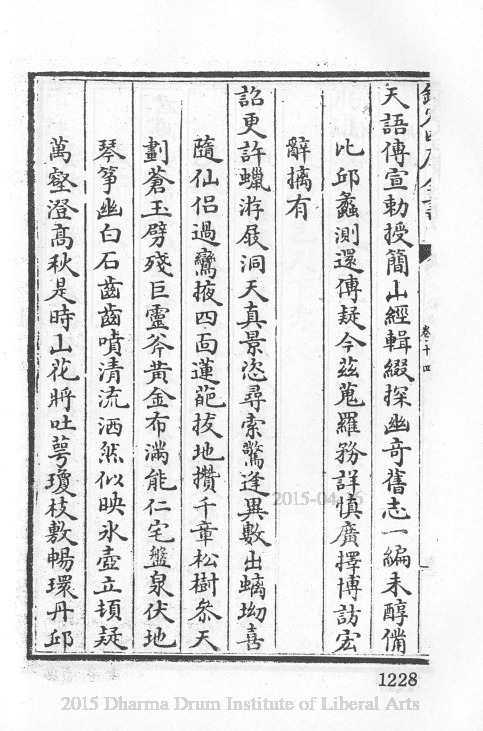 欽定四庫全書
卷二十四
天語傳宣勅授簡山經輯綴探幽奇舊志一編未醇備
比邱蠡測還傳疑今茲蒐羅務詳慎廣擇博訪宏
辭摛有
詔更許蠟游屐洞天真景恣尋索驚逢異數出螭坳喜
隨仙侶過鸞掖四面蓮葩拔地攢千章松樹參天
劃蒼玉劈殘巨靈斧黃金布滿能仁宅盤泉伏地
琴筝幽白石齒齒噴清流洒然似映氷壺立頓疑
萬壑澄髙秋是時山花將吐萼瓊枝敷暢環丹邱
2015-04-16
1228
2015 Dharma Drum Institute of Liberal Arts